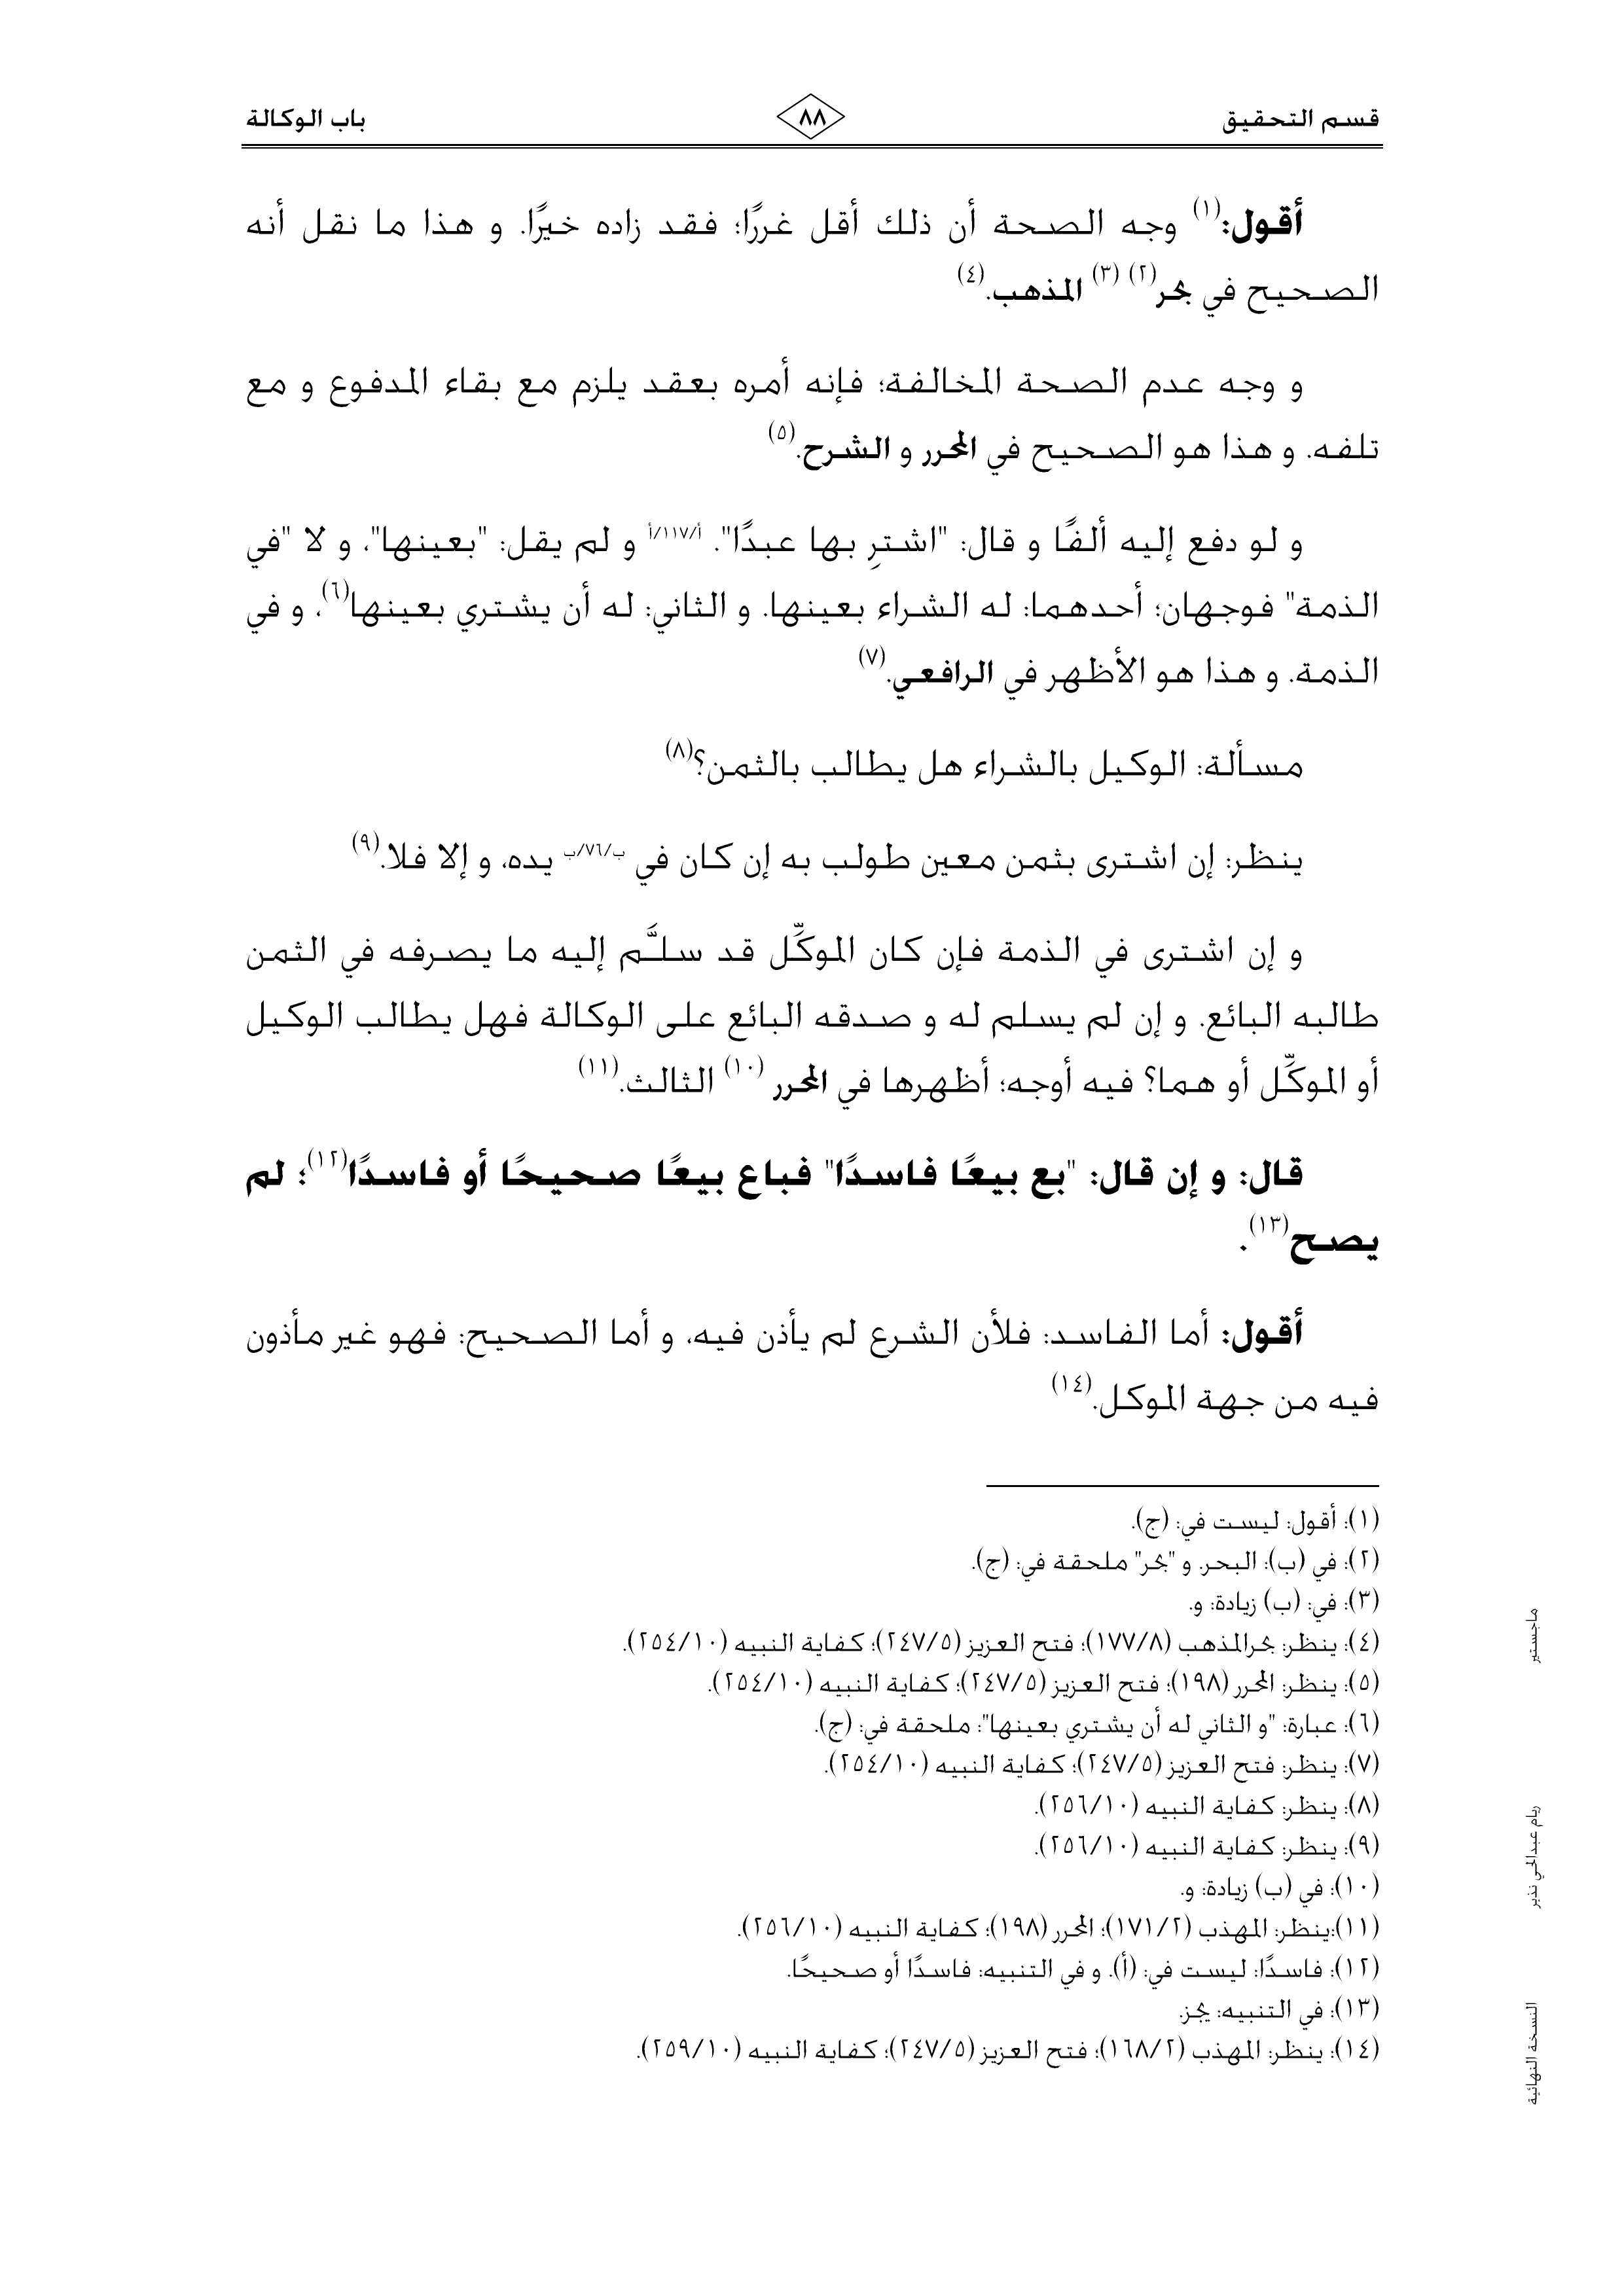 قسم التحقيق ٨٨ باب الوكالة
أقول:(١) وجه الصحة أن ذلك أقل غررًا؛ فقد زاده خيرًا. و هذا ما نقل أنه
الصحيح في بحر(٢) (٣) المذهب.(٤)
و وجه عدم الصحة المخالفة؛ فإنه أمره بعقد يلزم مع بقاء المدفوع و مع
تلفه. و هذا هو الصحيح في المحرر و الشرح.(٥)
و لو دفع إليه ألفًا و قال: "اشترِ بها عبدًا". أ/١١٧/أ و لم يقل: "بعينها"، و لا "في
الذمة" فوجهان؛ أحدهما: له الشراء بعينها. و الثاني: له أن يشتري بعينها(٦)، و في
الذمة. و هذا هو الأظهر في الرافعي.(٧)
مسألة: الوكيل بالشراء هل يطالب بالثمن؟(٨)
ينظر: إن اشترى بثمن معين طولب به إن كان في ب/٧٦/ب يده، و إلا فلا.(٩)
و إن اشترى في الذمة فإن كان الموكِّل قد سلَّم إليه ما يصرفه في الثمن
طالبه البائع. و إن لم يسلم له و صدقه البائع على الوكالة فهل يطالب الوكيل
أو الموكِّل أو هما؟ فيه أوجه؛ أظهرها في المحرر (١٠) الثالث.(١١)
قال: و إن قال: "بع بيعًا فاسدًا" فباع بيعًا صحيحًا أو فاسدًا(١٢)؛ لم
يصح(١٣).
أقول: أما الفاسد: فلأن الشرع لم يأذن فيه، و أما الصحيح: فهو غير مأذون
فيه من جهة الموكل.(١٤)
(١): أقول: ليست في: (ج).
(٢): في (ب): البحر. و "بحر" ملحقة في: (ج).
(٣): في: (ب) زيادة: و.
(٤): ينظر: بحرالمذهب (١٧٧/٨)؛ فتح العزيز (٢٤٧/٥)؛ كفاية النبيه (٢٥٤/١٠).
(٥): ينظر: المحرر (١٩٨)؛ فتح العزيز (٢٤٧/٥)؛ كفاية النبيه (٢٥٤/١٠).
(٦): عبارة: "و الثاني له أن يشتري بعينها": ملحقة في: (ج).
(٧): ينظر: فتح العزيز (٢٤٧/٥)؛ كفاية النبيه (٢٥٤/١٠).
(٨): ينظر: كفاية النبيه (٢٥٦/١٠).
(٩): ينظر: كفاية النبيه (٢٥٦/١٠).
(١٠): في (ب) زيادة: و.
(١١):ينظر: المهذب (١٧١/٢)؛ المحرر (١٩٨)؛ كفاية النبيه (٢٥٦/١٠).
(١٢): فاسدًا: ليست في: (أ). و في التنبيه: فاسدًا أو صحيحًا.
(١٣): في التنبيه: يجز.
(١٤): ينظر: المهذب (١٦٨/٢)؛ فتح العزيز (٢٤٧/٥)؛ كفاية النبيه (٢٥٩/١٠).
ماجستير
ريام عبدالحي نذير
النسخة النهائية